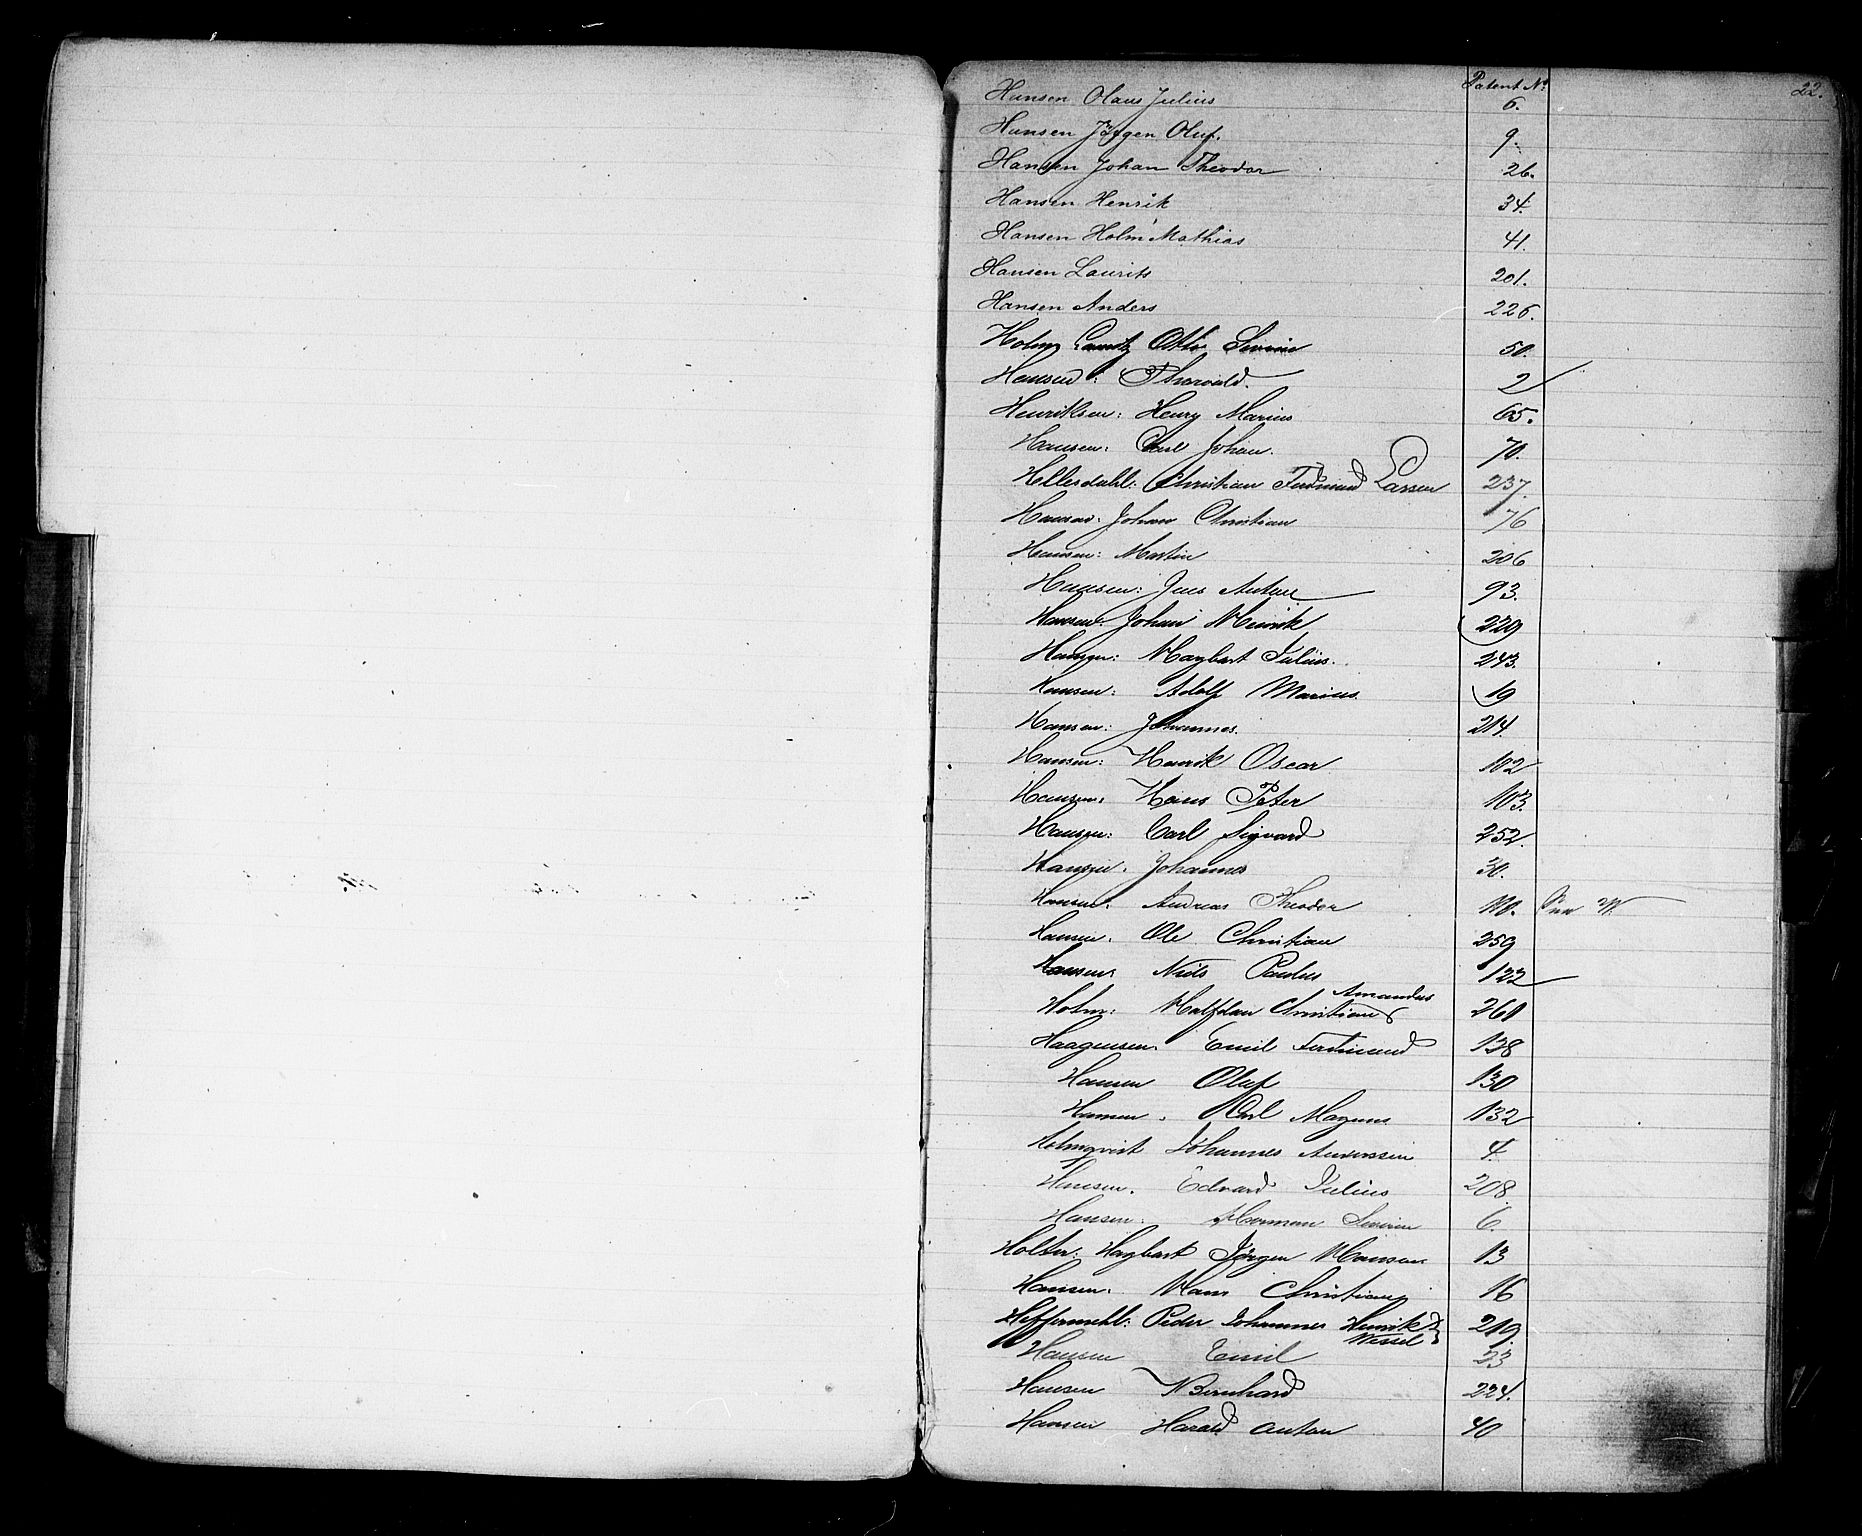 Patent No 22.
Hansen Olaus Julius 6.
Hansen Jörgen Oluf. 9.
Hansen Johan Theodor 26.
Hansen Henrik 34.
Hansen Holm Mathias 41.
Hansen Laurits 201.
Hansen Anders 226.
Holm Lauritz Otto Severin 50.
Hansen: Thorvald. 2
Henriksen: Henry Marius 65.
Hansen: Carl Johan. 70.
Hellesdahl: Christian Ferdinand Larsen 237.
Hansen: Johan Christian 76
Hansen: Martin 206
Hansen: Jens Anton 93.
Hansen: Johan Henrik 229
Hansen: Hagbart Julius. 243.
Hansen: Adolf Marius. 19
Hansen: Johannes. 214.
Hansen: Henrik Oscar. 102
Hansen: Hans Peter 103.
Hansen: Carl Sigvard 252.
Hansen. Johannes 30.
Hansen: Andreas Theodor 110.
Hansen. Ole Christian 259
Hansen: Niels Paulus 122
Holm: Halfdan Christian Amandus 261
Haagensen. Emil Ferdinand 128
Hansen Oluf 130
Hansen. Carl Magnus 132
Holmqvist Johannes Anderssen 4.
Hansen. Edvard Julius 208.
Hansen: Herman Severin 6.
Holter: Hagbart Jörgen Hansen 13
Hansen: Hans Christian 16
Heffermehl: Peder Johannes Henrik Wessel 219.
Hansen Emil 23
Hansen Bernhard 224.
Hansen Harald Anton 40